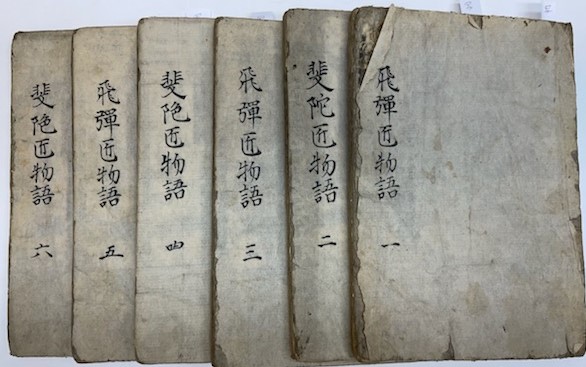 飛彈匠物語 一
斐陀匠物語 二
飛彈匠物語 三
斐陁匠物語 四
飛彈匠物語 五
斐陁匠物語 六